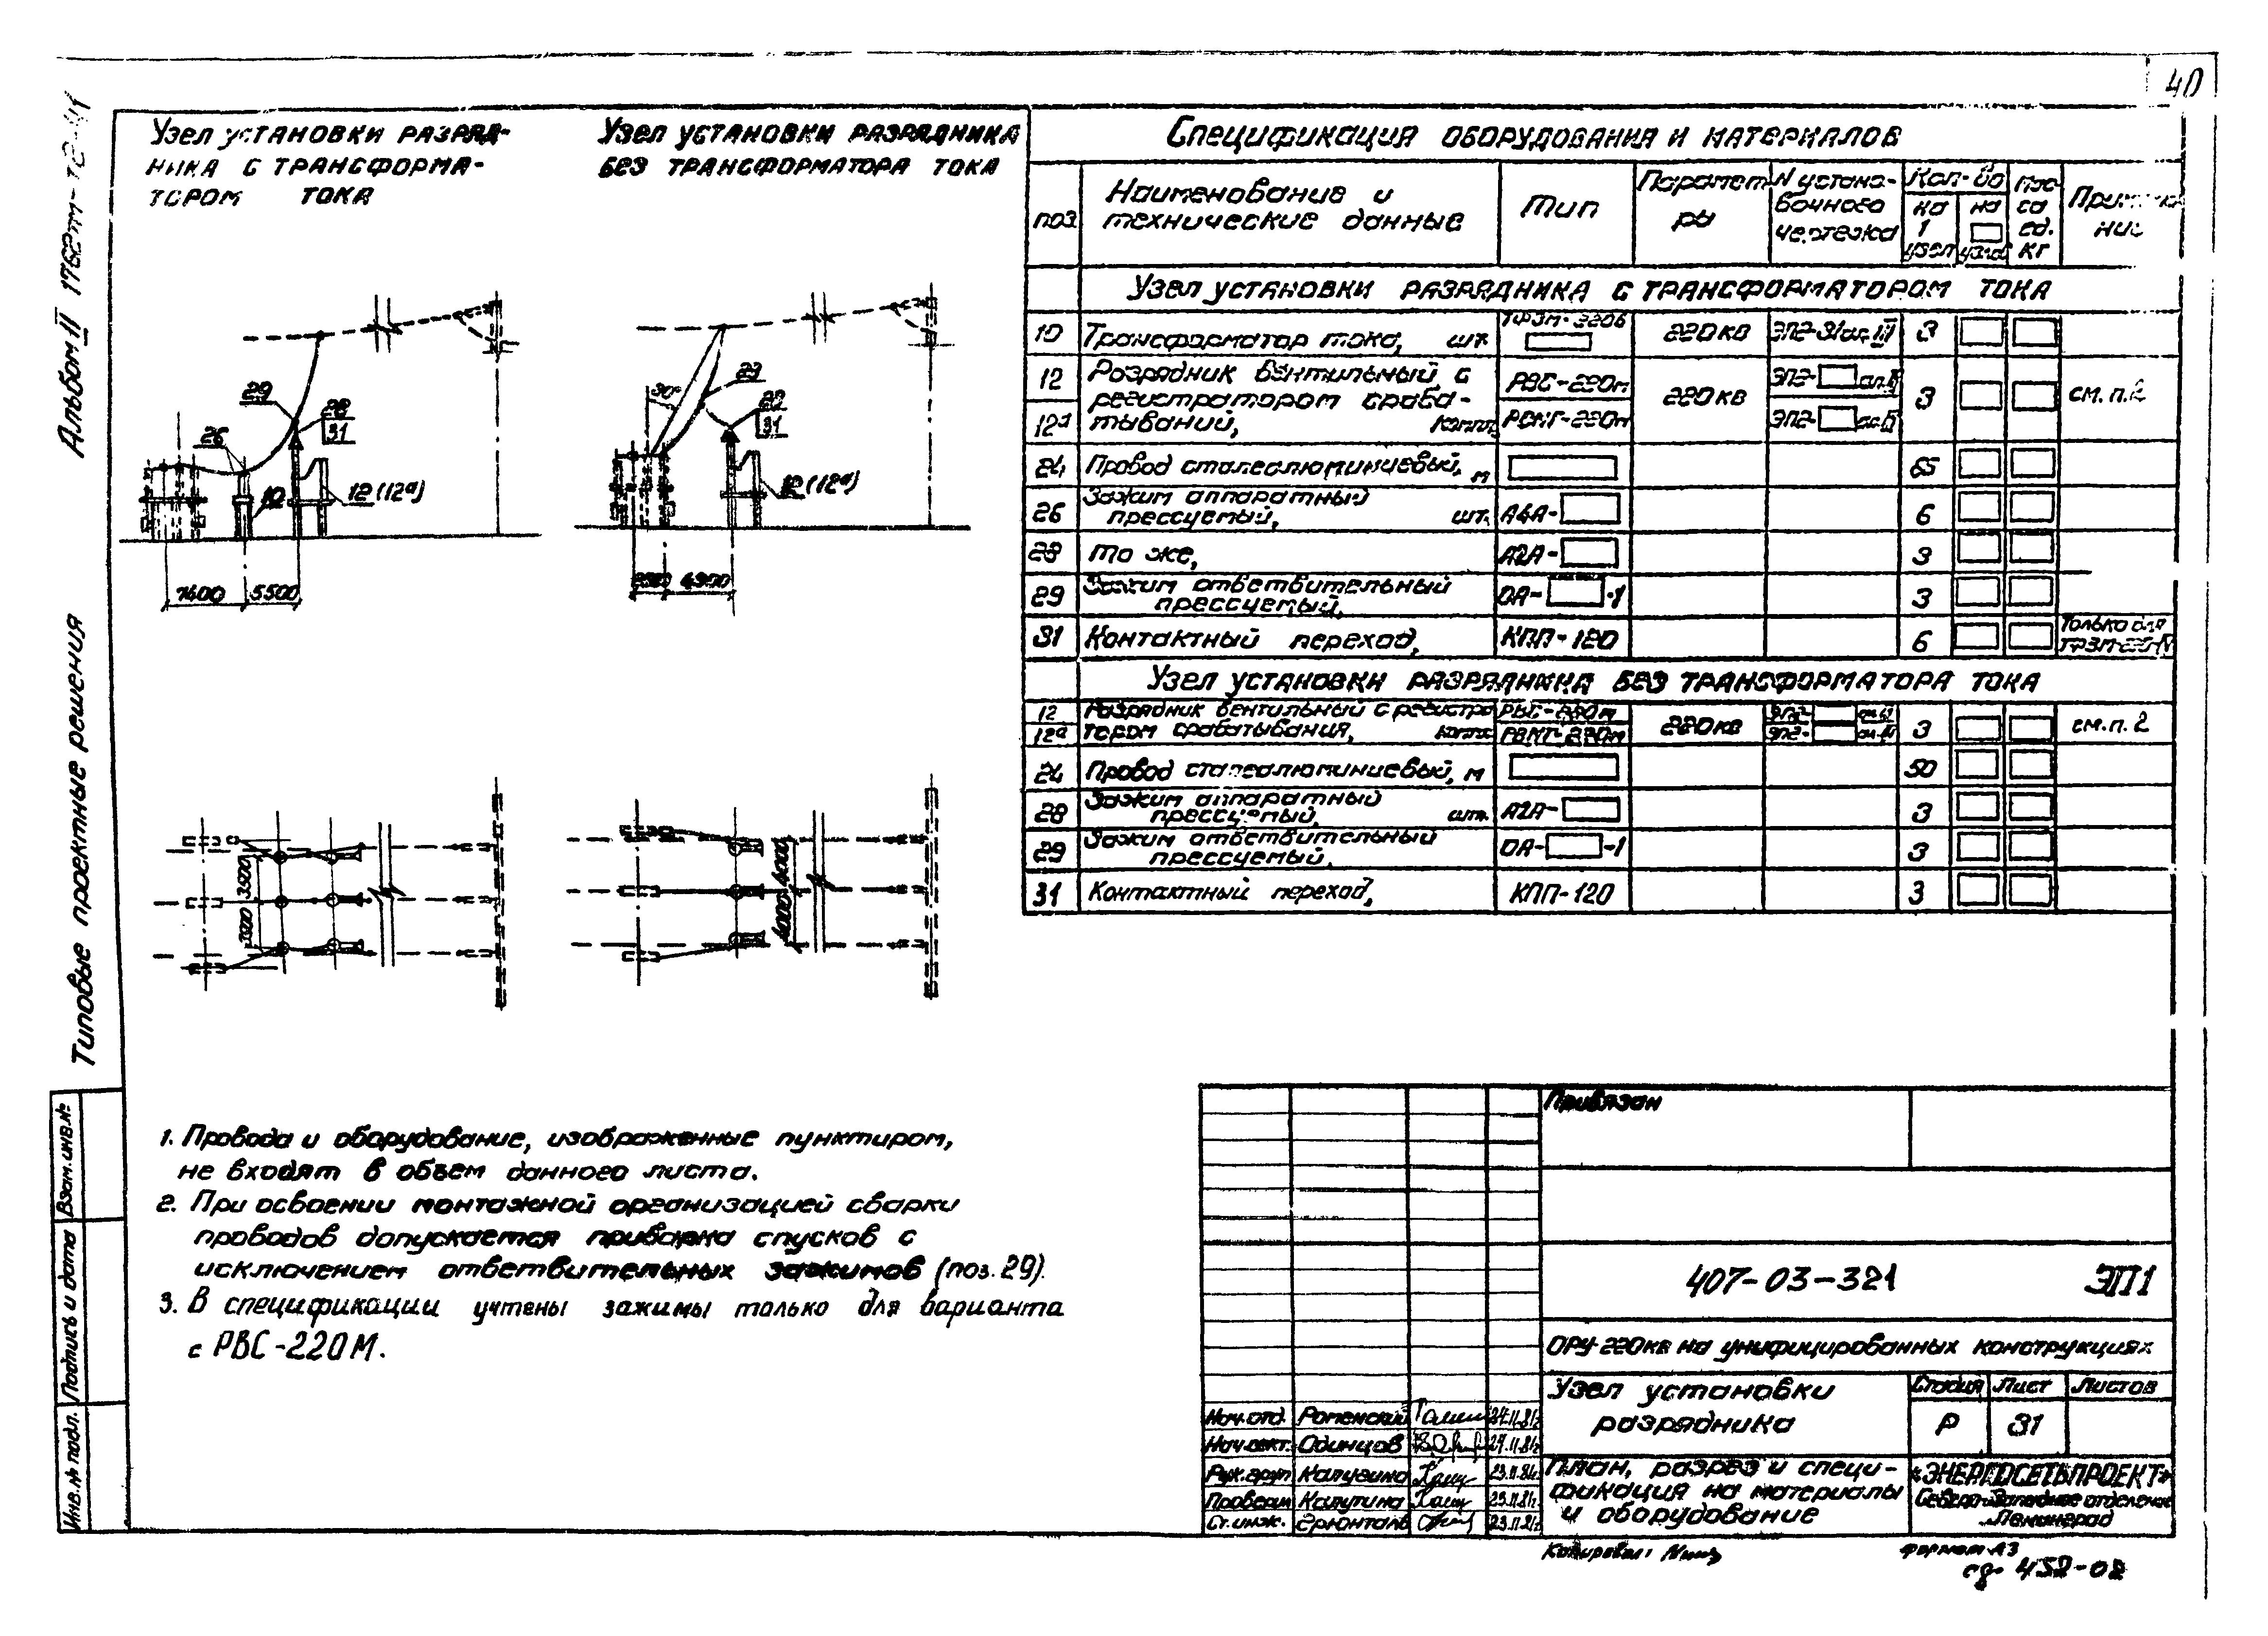 40
Альбом II
Типовые проектные решения
Узел установки разряд-
ника с трансформа-
тором тока
Узел установки разрядника
без трансформатора тока
29
28
31
26
10
12 (12а)
7400
5500
30°
29
28
31
12 (12а)
4900
3500
4000
4000
Спецификация оборудования и материалов
поз.
Наименование и
технические данные
Тип
Парамет
ры
N устано-
вочного
чертежа
Кол-во
на
1
узел
на
узла
Мас-
са
ед.
кг
Узел установки разрядника с трансформатором тока
10 Трансформатор тока, шт. 220кв 3
12 Разрядник вентильный с РВС-220м ЭП2-
регистратором сраба- 220кв 3 см.п.2
12а тываний, компл. РВМГ-220м ЭП2-
24 Провод сталеалюминиевый, м 65
26 Зажим аппаратный
прессуемый, шт. А4А- 6
28 То же, А2А- 3
29 Зажим ответвительный
прессуемый, ОА- -1 3
31 Контактный переход, КПП-120 6 Только для
Узел установки разрядника без трансформатора тока
12 Разрядник вентильный с регистра РВС-220м ЭП2-
12а тором срабатывания, компл. РВМГ-220м 220кв ЭП2- 3 см.п.2
24 Провод сталеалюминиевый, м 50
28 Зажим аппаратный
прессуемый, шт. А2А- 3
29 Зажим ответвительный
прессуемый, ОА- -1 3
31 Контактный переход, КПП-120 3
1. Провода и оборудование, изображенные пунктиром,
не входят в объем данного листа.
2. При освоении монтажной организацией сварки
проводов допускается приварка спусков с
исключением ответвительных зажимов (поз.29).
3. В спецификации учтены зажимы только для варианта
с РВС-220М.
Взам.инв.№
Подпись и дата
Инв.№ подл.
Привязан
407-03-321 ЭП1
ОРУ 220кв на унифицированных конструкциях
Узел установки
разрядника
Стадия Лист Листов
Р 31
План, разрез и специ-
фикация на материалы
и оборудование
«ЭНЕРГОСЕТЬПРОЕКТ»
Северо-Западное отделение
Ленинград
Нач.отд. Роменский
Нач.сект. Одинцов
Рук.груп
Проверил
Ст.инж.
Копировал:
формат А3
сд. 452-02